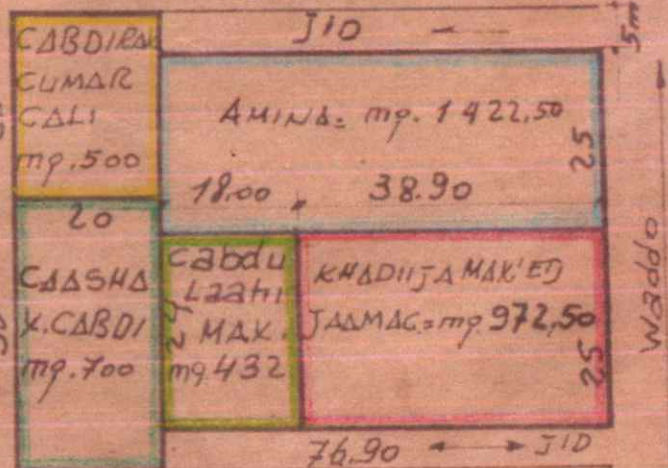 JID
5m
CABDIRAX
CUMAR
CALI
mq.500
AMINA= mq. 1422,50
25
18.00 38.90
20
CAASHA
X.CABDI
mq.700
Cabdu
Laahi
MAX.
mq.432
24
KHADIIJA MAX'ED
JAAMAC=mq.972,50
25
Waddo
76.90 JID